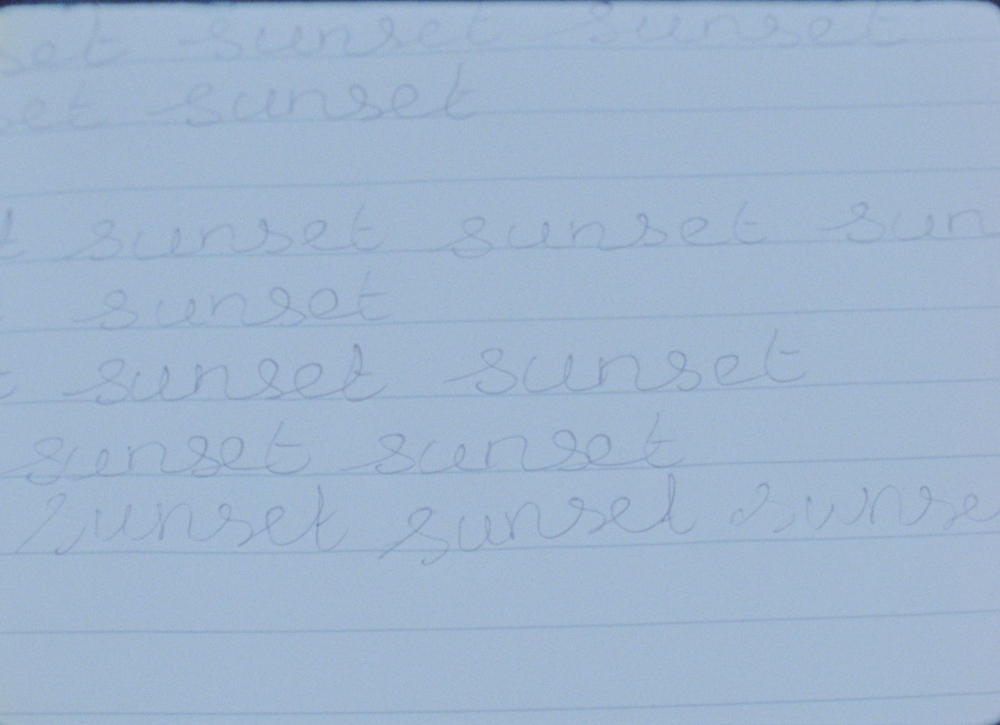 set sunset sunset
set sunset
t sunset sunset sun
t sunset
t sunset sunset
sunset sunset
sunset sunset sunse